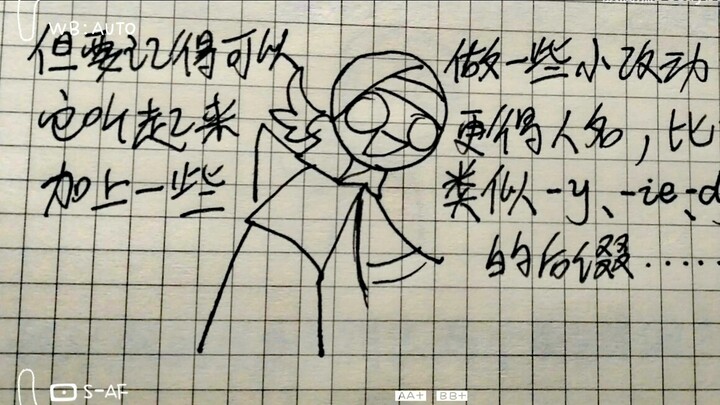 WB:AUTO
但要记得可以 做一些小改动
它听起来 更像人名，比
加上一些 类似-y、-ie、-d
的后缀……
S-AF
AA+ BB+